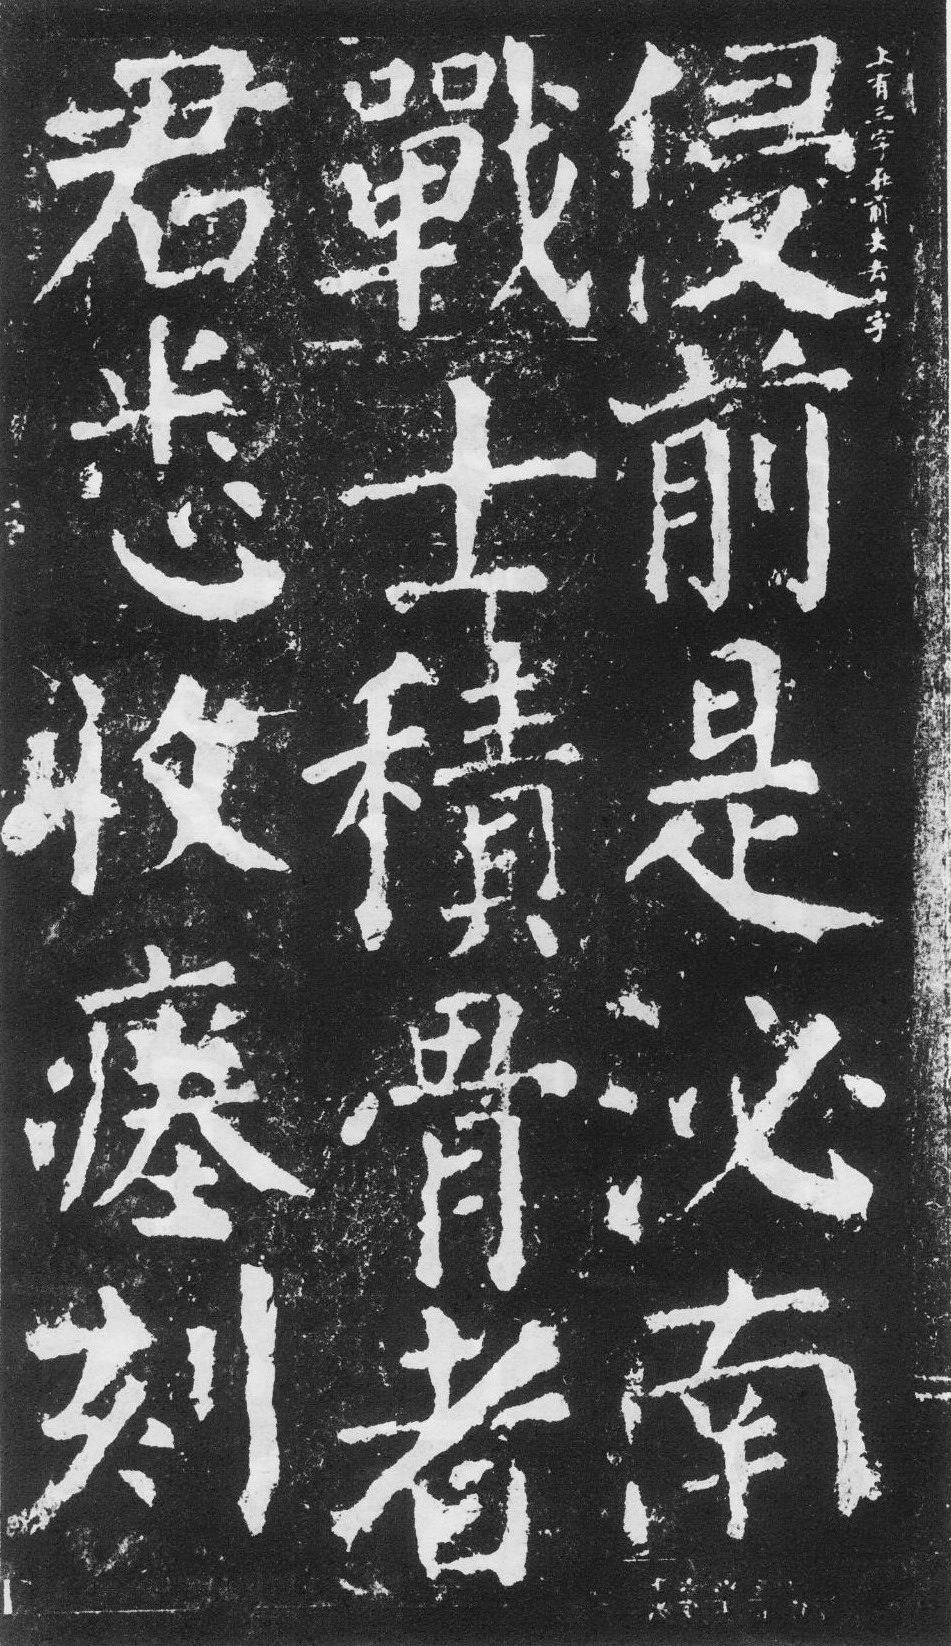 上有三字在前
侵前是泌南
戰士積骨者
君悉收瘞刻